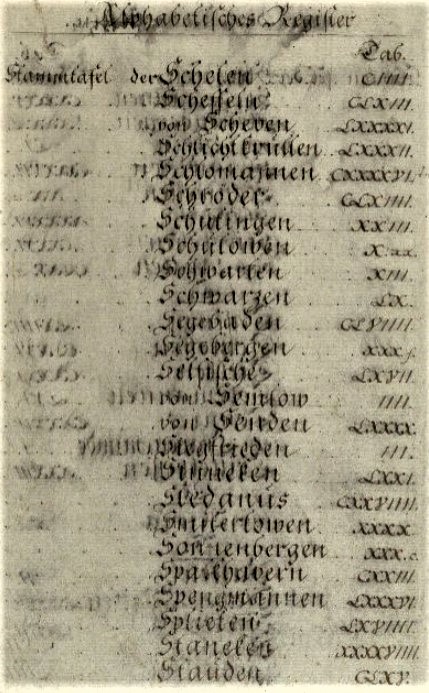 Alphabetisches Register
Tab.
Stammtafel der Schelen CIIII.
Scheffeln CLXIII.
von Scheven LXXXXI.
Schlichtkrullen LXXXII.
Schlomannen CXXXXVI.
Schröder CLXIIII.
Schulingen XXIII.
Schulowen
Schwarten XIII.
Schwarzen LX.
Segebaden CLVIIII.
Segebergen
Seltsche LXVII.
von Semlow IIII.
von Senden LXXXX.
Siegfrieden III.
Sinneken LXXI.
Sledanus CXXVIIII.
Smiterlowen XXXX.
Sonnenbergen
Sparhavern CXXIII.
Spengmannen LXXXVI.
Splieten LXVIIII.
Staneken XXXXVIIII.
Stauden CLXV.